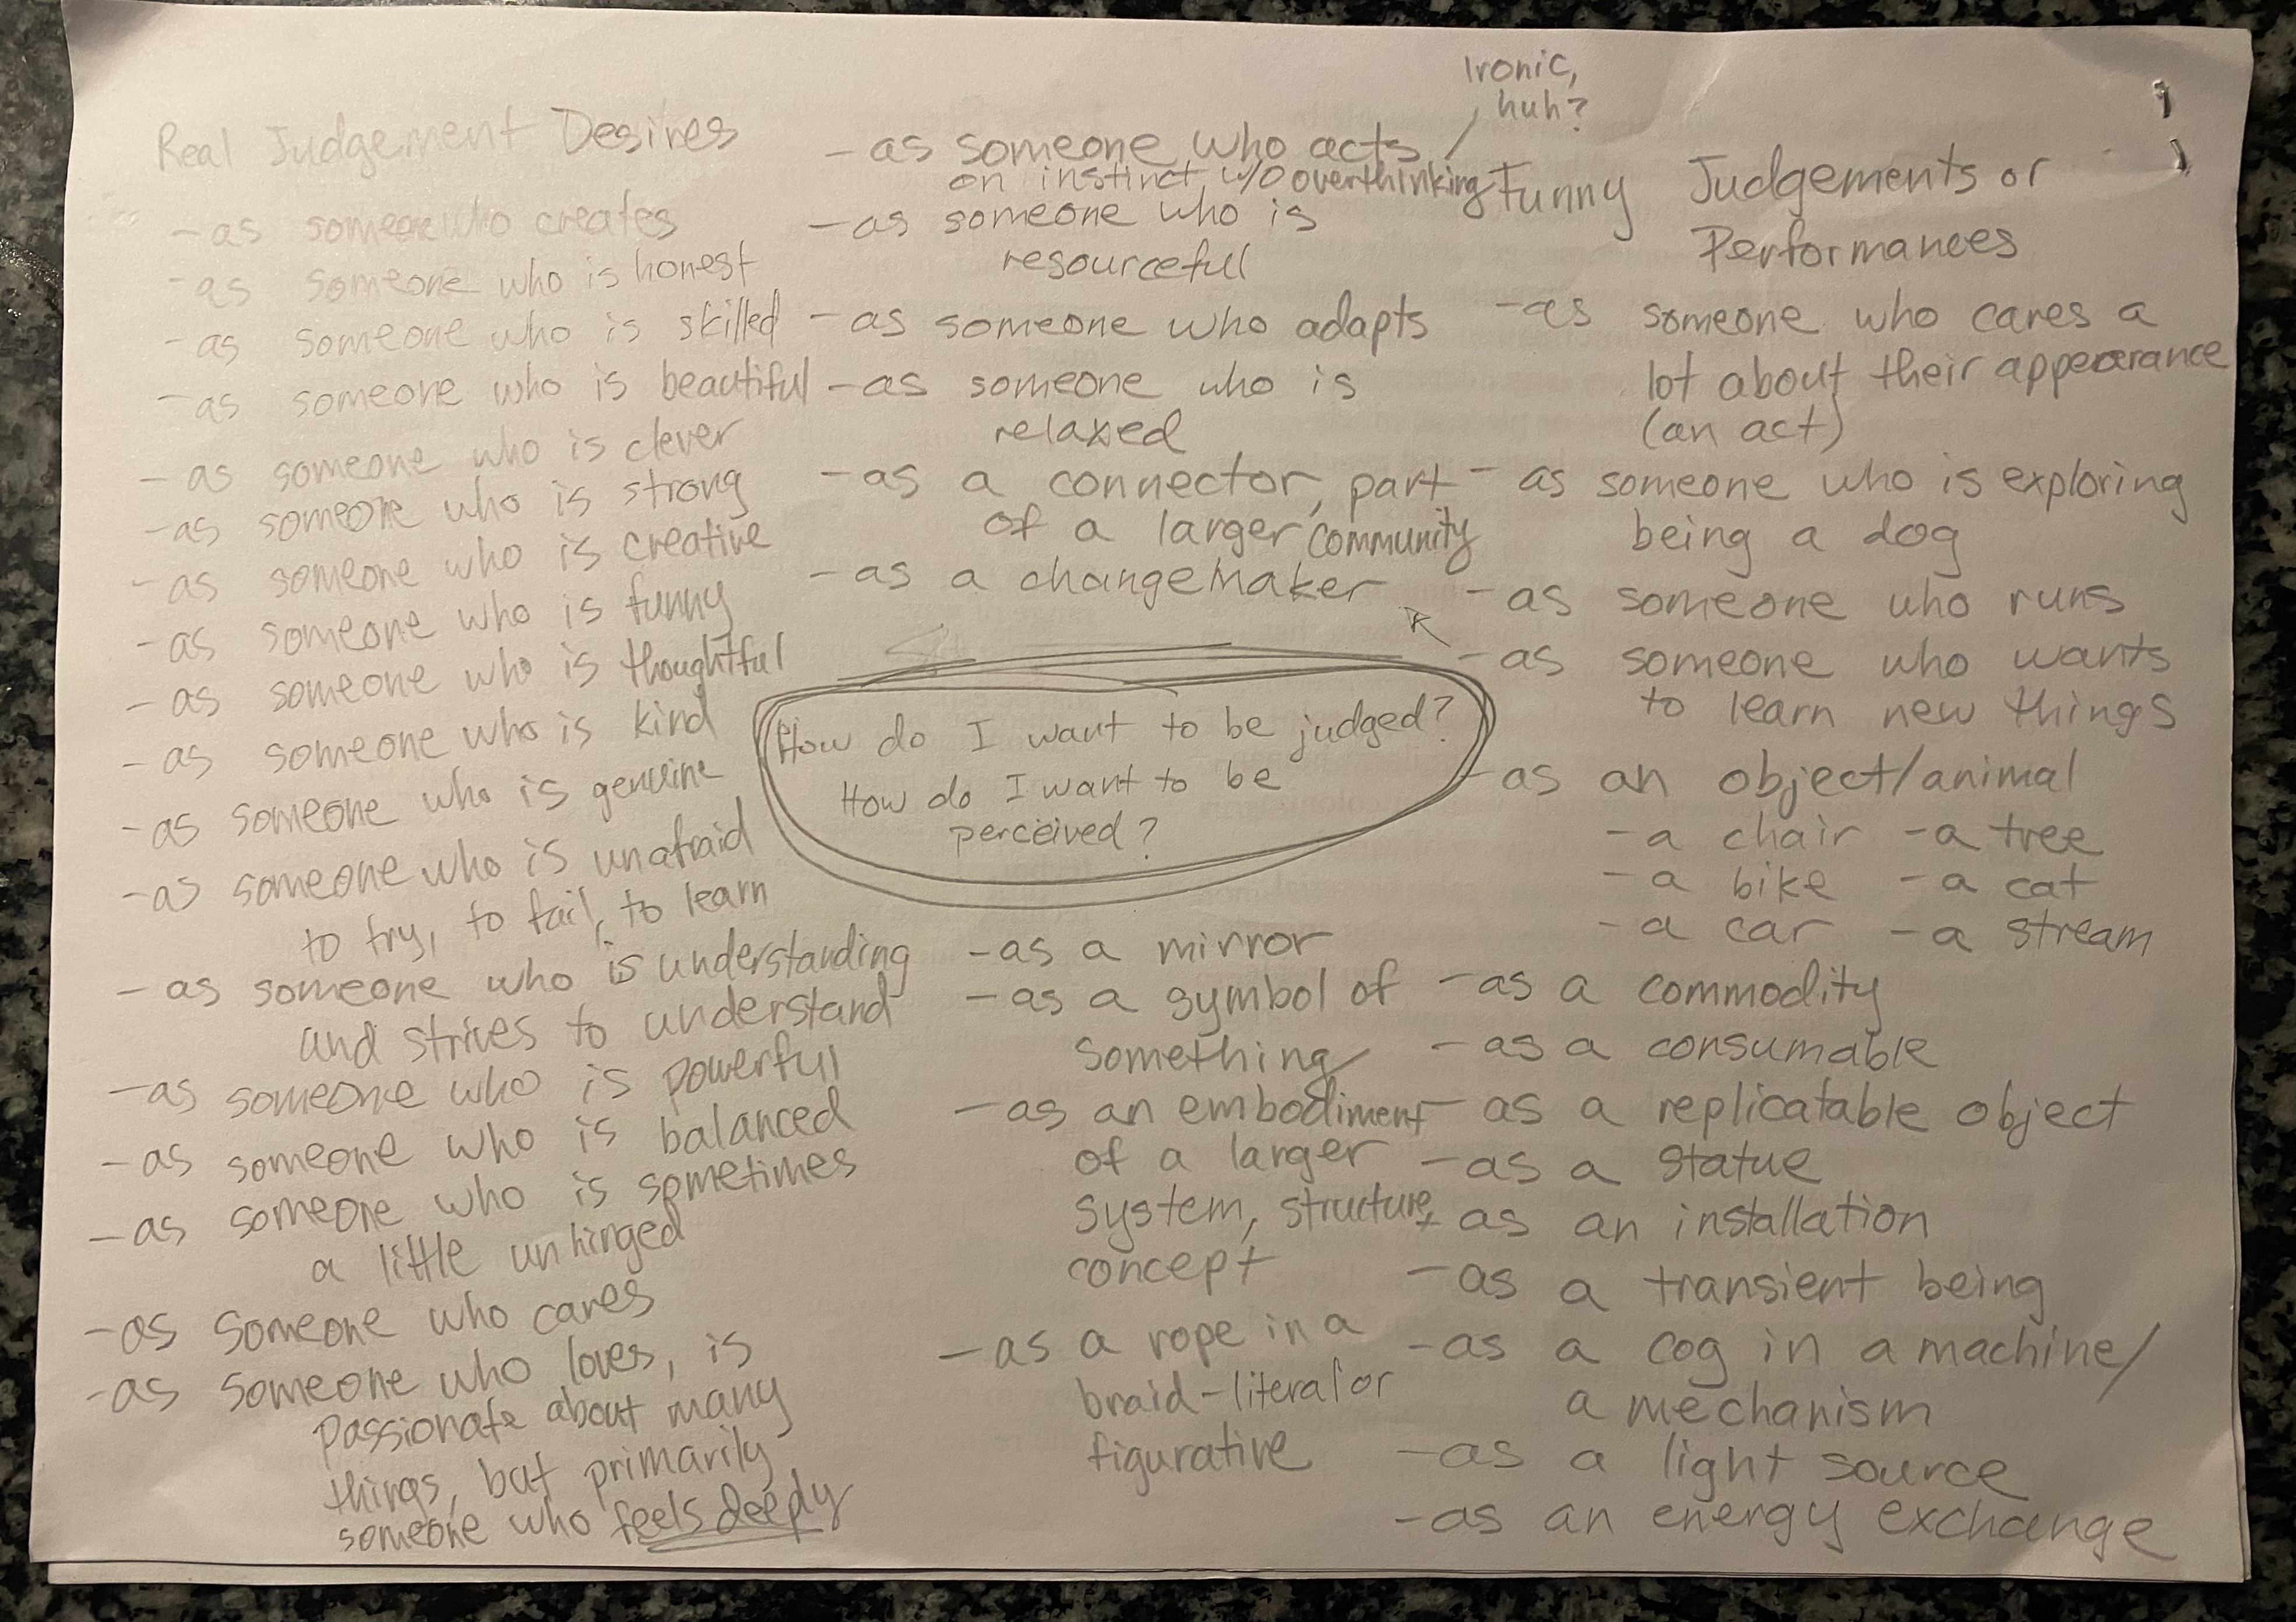 Real Judgement Desires
- as someone who creates
- as someone who is honest
- as someone who is skilled
- as someone who is beautiful
- as someone who is clever
- as someone who is strong
- as someone who is creative
- as someone who is funny
- as someone who is thoughtful
- as someone who is kind
- as someone who is genuine
- as someone who is unafraid
to try, to fail, to learn
- as someone who is understanding
and strives to understand
- as someone who is powerful
- as someone who is balanced
- as someone who is sometimes
a little unhinged
- as someone who cares
- as someone who loves, is
passionate about many
things, but primarily
someone who feels deeply
Ironic,
huh?
- as someone who acts
on instinct w/o overthinking
- as someone who is
resourceful
- as someone who adapts
- as someone who is
relaxed
- as a connector, part
of a larger community
- as a changemaker
How do I want to be judged?
How do I want to be
perceived?
- as a mirror
- as a symbol of
something
- as an embodiment
of a larger
system, structure,
concept
- as a rope in a
braid - literal or
figurative
Funny Judgements or
Performances
- as someone who cares a
lot about their appearance
(an act)
- as someone who is exploring
being a dog
- as someone who runs
- as someone who wants
to learn new things
- as an object/animal
- a chair - a tree
- a bike - a cat
- a car - a stream
- as a commodity
- as a consumable
- as a replicatable object
- as a statue
- as an installation
- as a transient being
- as a cog in a machine/
a mechanism
- as a light source
- as an energy exchange